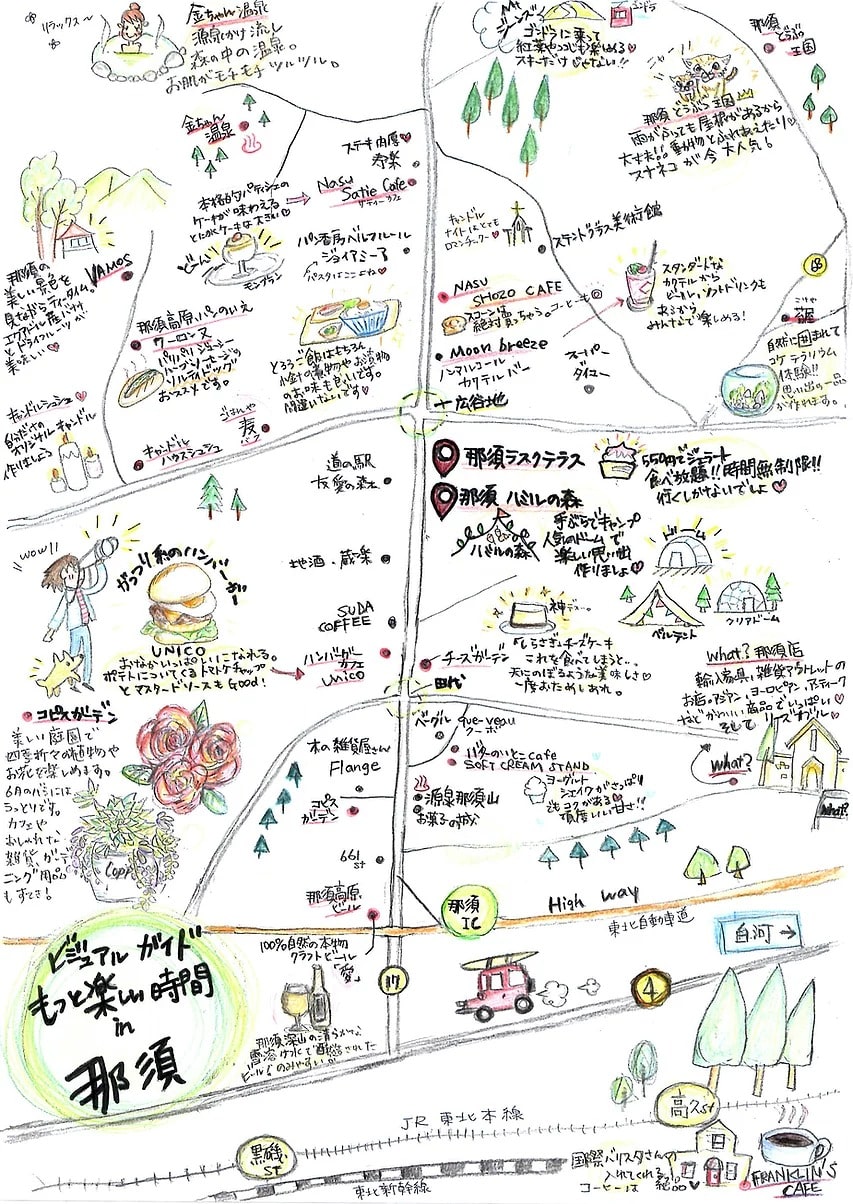 リラックス〜
金ちゃん温泉
源泉かけ流し
森の中の温泉。
お肌がモチモチツルツル。
ジーンズ
ゴンドラ
ゴンドラに乗って
紅葉やつつじも楽しめる♡
スキーだけじゃない!!
那須
どうぶつ
王国
ニャー!!
那須どうぶつ王国
雨がふっても屋根があるから
大丈夫!!動物とふれあえたり♡
スナネコが今大人気!
金ちゃん
温泉
ステキ肉厚♡
寿楽
Nasu
Satie Cafe
サティーカフェ
本格的パティシエの
ケーキが味わえる
とにかくケーキが大きい♡
どーん
モンブラン
パン香房ベルフルール
ジョイアミーア
パスタはここよね♡
キャンドル
ナイトはとても
ロマンチック〜♡
ステンドグラス美術館
NASU
SHOZO CAFE
スコーンは
絶対買っちゃう。
コーヒーも◎
Moon breeze
ノンアルコール
カクテルバー
スタンダードな
カクテルから
ビール、ソフトドリンクも
あるから
みんなで楽しめる!
スーパー
ダイユー
68
自然に囲まれて
コケテラリウム
体験!!
思い出の一品
が作れます。
VAMOS
那須の
美しい景色を
見ながらティータイム。
美味しい♡
那須高原パンのいえ
クーロンヌ
パリパリジューシー
ハーブソーセージの
ソルティドッグが
おススメです。
とろろご飯はもちろん
小金の煮物やお漬物
のお味も良いです。
間違いないです♡
キャンドルシュシュ♡
6分だけの
オリジナルキャンドル
作りましょう
キャンドル
ハウスシュシュ
ごはんや
麦
バク
広谷地
道の駅
友愛の森
那須ラスクテラス
550円でジェラート
食べ放題!!時間無制限!!
行くしかないでしょ♡
那須ハミルの森
ハミルの森
手ぶらでキャンプ
人気のドームで
楽しい思い出
作りましょ♡
ベルテント
クリアドーム
地酒・蔵楽
SUDA
COFFEE
wow!!
がっつり系のハンバーガー
UNICO
おなかいっぱいにこなれる。
ポテトについてくるトマトケチャップ
とマスタードソースもGood!
ハンバーガー
カフェ
unico
神デザ〜。
チーズガーデン
「しらさぎ」チーズケーキ
これを食べてしまうと‥
天にのぼるような美味しさ♡
一度おためしあれ。
what?那須店
輸入家具、雑貨アウトレットの
お店。アジアン、ヨーロピアン、アンティーク
などかわいい商品でいっぱい♡
そしてリーズナブル♡
what?
what?
田代
コピスガーデン
美しい庭園で
四季折々の植物や
お花を楽しめます。
6月のバラには
うっとりです。
カフェや
おしゃれな
雑貨、ガーデ
ニング用品
もすてき!
Copi
木の雑貨屋さん
Flange
コピス
ガーデン
661
st
那須高原
ビール
ベーグル que-veau
クーボー
バターのいとこcafe
SOFT CREAM STAND
ヨーグルト
シェイクがさっぱり
でもコクがある♡
程度いい甘さ!!
源泉那須山
お菓子の城
那須
IC
High Way
東北自動車道
白河→
ビジュアルガイド
もっと楽しい時間
in
那須
100%自然の本物
クラフトビール
「愛」
那須深山の清らかな
雪溶け水で醸造された
ビール!のみやすい♡
17
4
高久st
JR 東北本線
黒磯
ST
東北新幹線
国際バリスタさんの
入れてくれる
コーヒーは絶品♡
FRANKLIN'S
CAFE